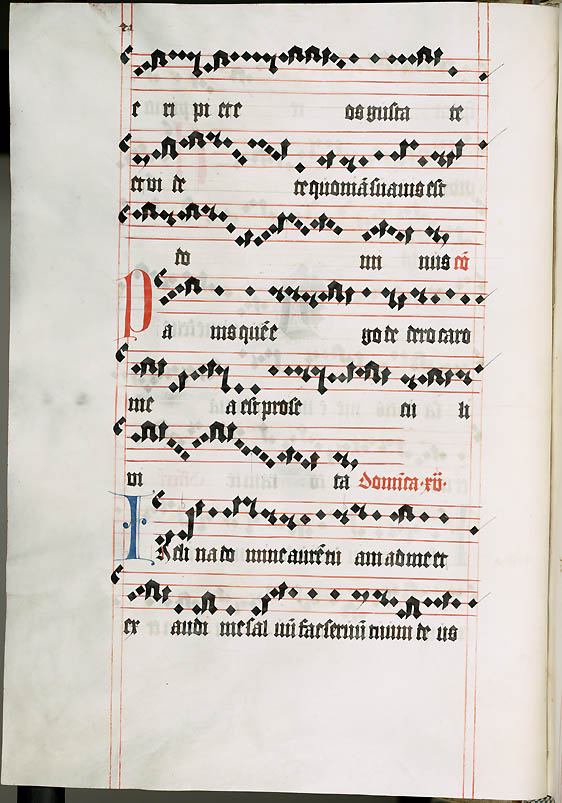 e ri pi ete os gusta te
et vi de te quoniā suauis est
do mi nus cō
P a nis quē e go de dero caro
me a est pro se cu li
vi ta Domica · xv ·
I Ncli na do mine aurē tu am ad me et
ex audi me sal uū fac seruū tuum de us